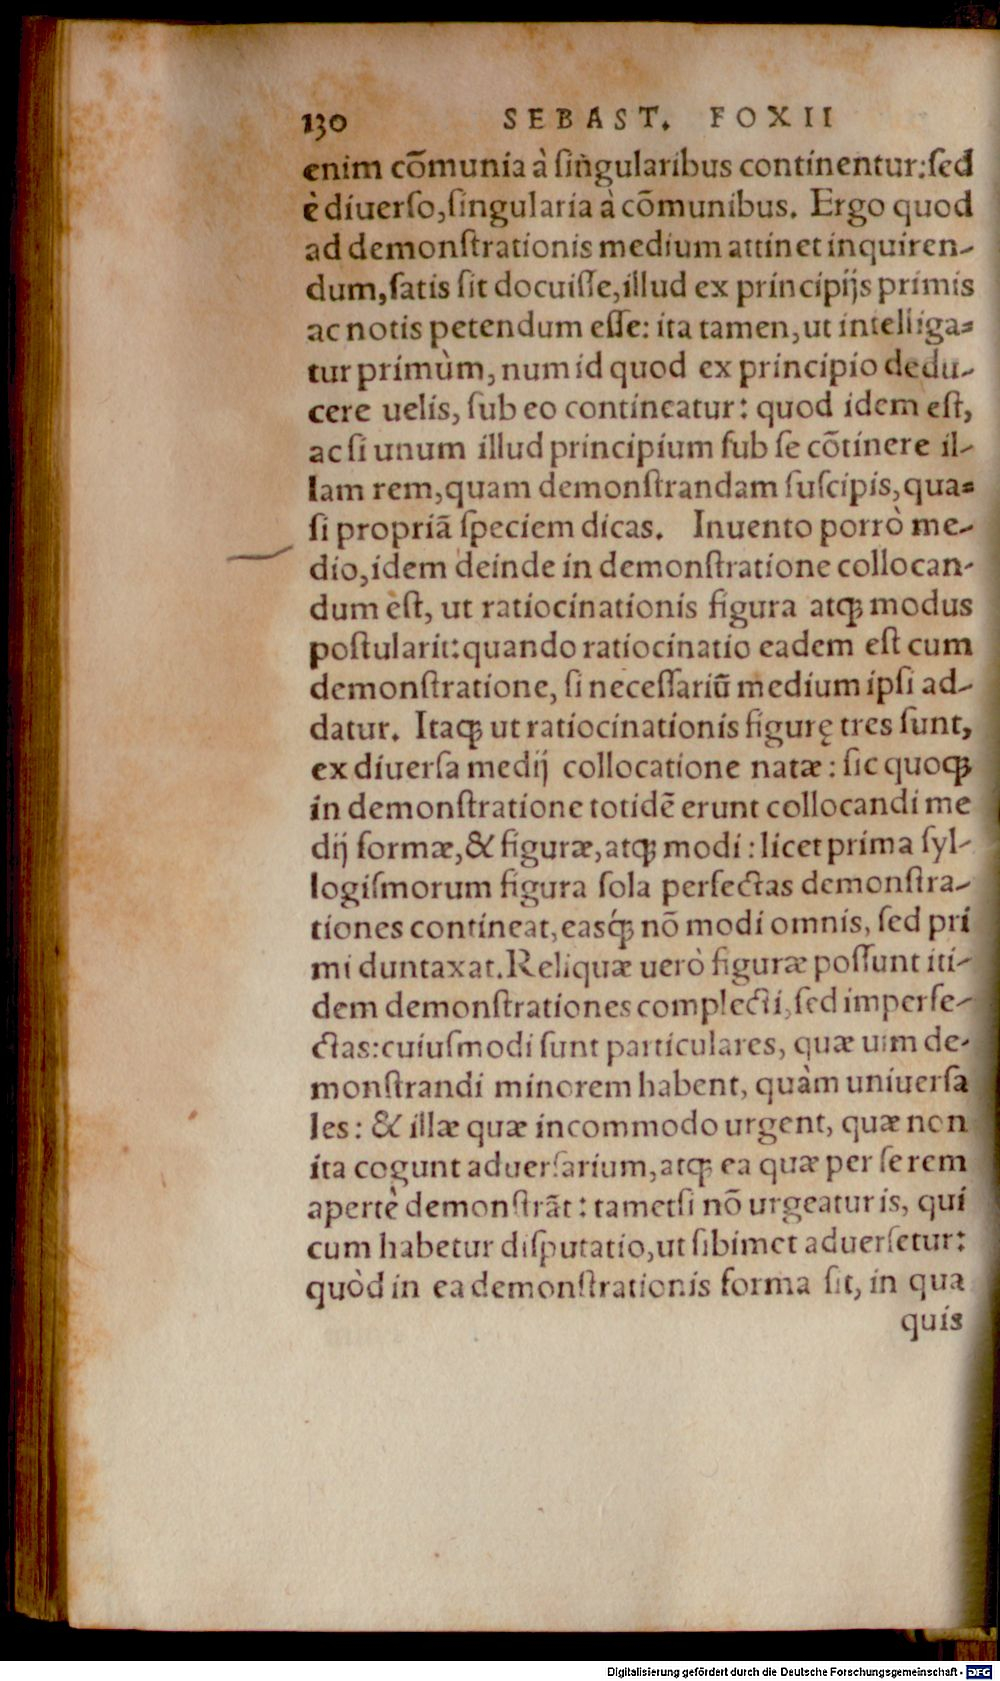 130 SEBAST. FOXII
enim cõmunia à ſingularibus continentur: ſed
è diuerſo, ſingularia à cõmunibus. Ergo quod
ad demonſtrationis medium attinet inquiren-
dum, ſatis ſit docuiſſe, illud ex principijs primis
ac notis petendum eſſe: ita tamen, ut intelliga-
tur primùm, num id quod ex principio dedu-
cere uelis, ſub eo contineatur: quod idem eſt,
ac ſi unum illud principium ſub ſe cõtinere il-
lam rem, quam demonſtrandam ſuſcipis, qua-
ſi propriã ſpeciem dicas. Inuento porrò me-
dio, idem deinde in demonſtratione collocan-
dum eſt, ut ratiocinationis figura atq; modus
poſtularit: quando ratiocinatio eadem eſt cum
demonſtratione, ſi neceſſariũ medium ipſi ad-
datur. Itaq; ut ratiocinationis figurę tres ſunt,
ex diuerſa medij collocatione natæ: ſic quoq;
in demonſtratione totidẽ erunt collocandi me
dij formæ, & figuræ, atq; modi: licet prima ſyl-
logiſmorum figura ſola perfectas demonſtra-
tiones contineat, easq́; nõ modi omnis, ſed pri
mi duntaxat. Reliquæ uerò figuræ poſſunt iti-
dem demonſtrationes complecti, ſed imperfe-
ctas: cuiuſmodi ſunt particulares, quæ uim de-
monſtrandi minorem habent, quàm uniuerſa
les: & illæ quæ incommodo urgent, quæ non
ita cogunt aduerſarium, atq; ea quæ per ſe rem
apertè demonſtrãt: tametſi nõ urgeatur is, qui
cum habetur diſputatio, ut ſibimet aduerſetur:
quòd in ea demonſtrationis forma ſit, in qua
quis
Digitalisierung gefördert durch die Deutsche Forschungsgemeinschaft - DFG